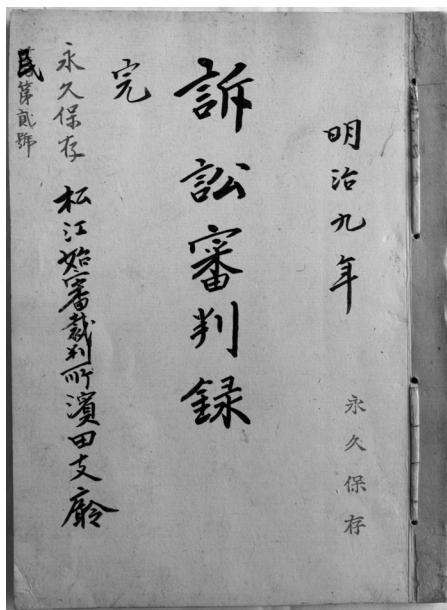 明治九年
永久保存
訴訟審判録
完
永久保存
松江始審裁判所濱田支廳
民第貳號